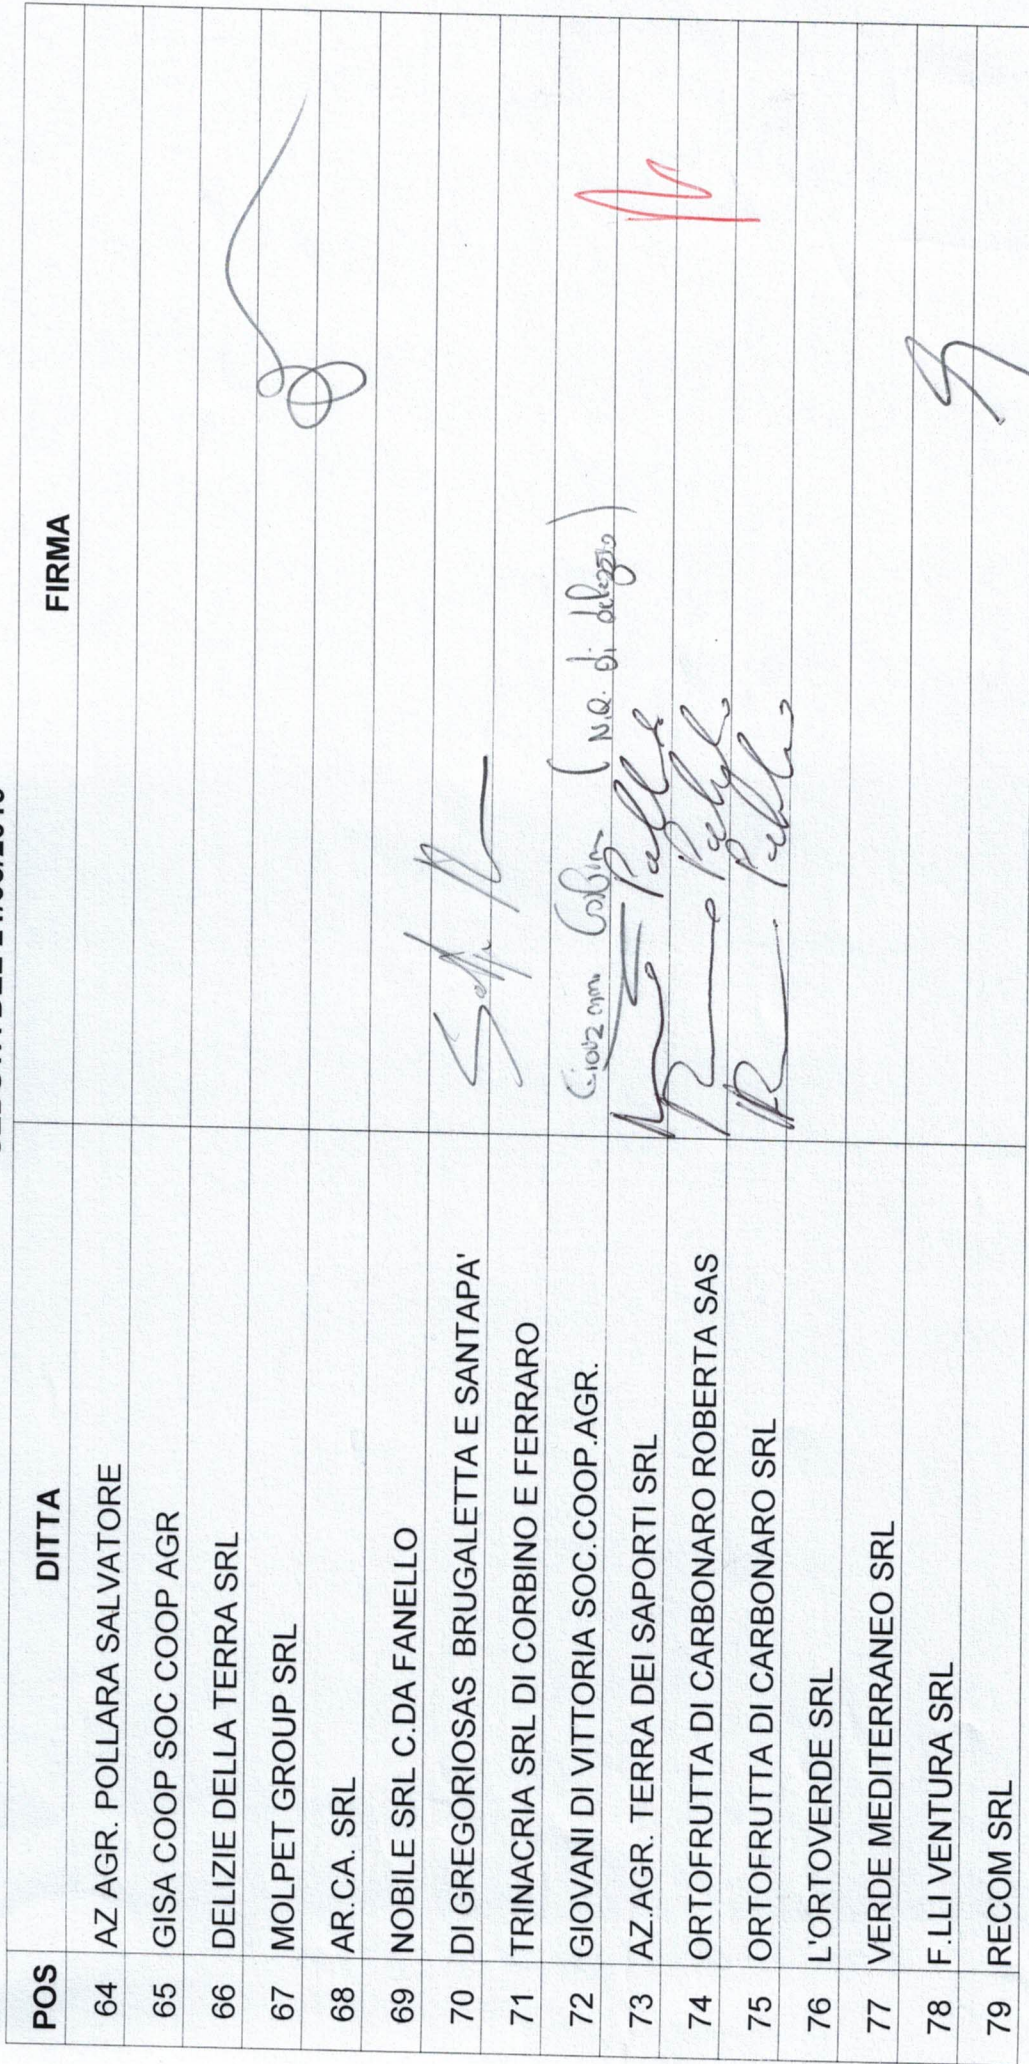 POS DITTA FIRMA
64 AZ AGR. POLLARA SALVATORE
65 GISA COOP SOC COOP AGR
66 DELIZIE DELLA TERRA SRL
67 MOLPET GROUP SRL
68 AR.CA. SRL
69 NOBILE SRL C.DA FANELLO
70 DI GREGORIOSAS BRUGALETTA E SANTAPA'
71 TRINACRIA SRL DI CORBINO E FERRARO
72 GIOVANI DI VITTORIA SOC.COOP.AGR. (N.Q. di delegato)
73 AZ.AGR. TERRA DEI SAPORTI SRL
74 ORTOFRUTTA DI CARBONARO ROBERTA SAS
75 ORTOFRUTTA DI CARBONARO SRL
76 L'ORTOVERDE SRL
77 VERDE MEDITERRANEO SRL
78 F.LLI VENTURA SRL
79 RECOM SRL